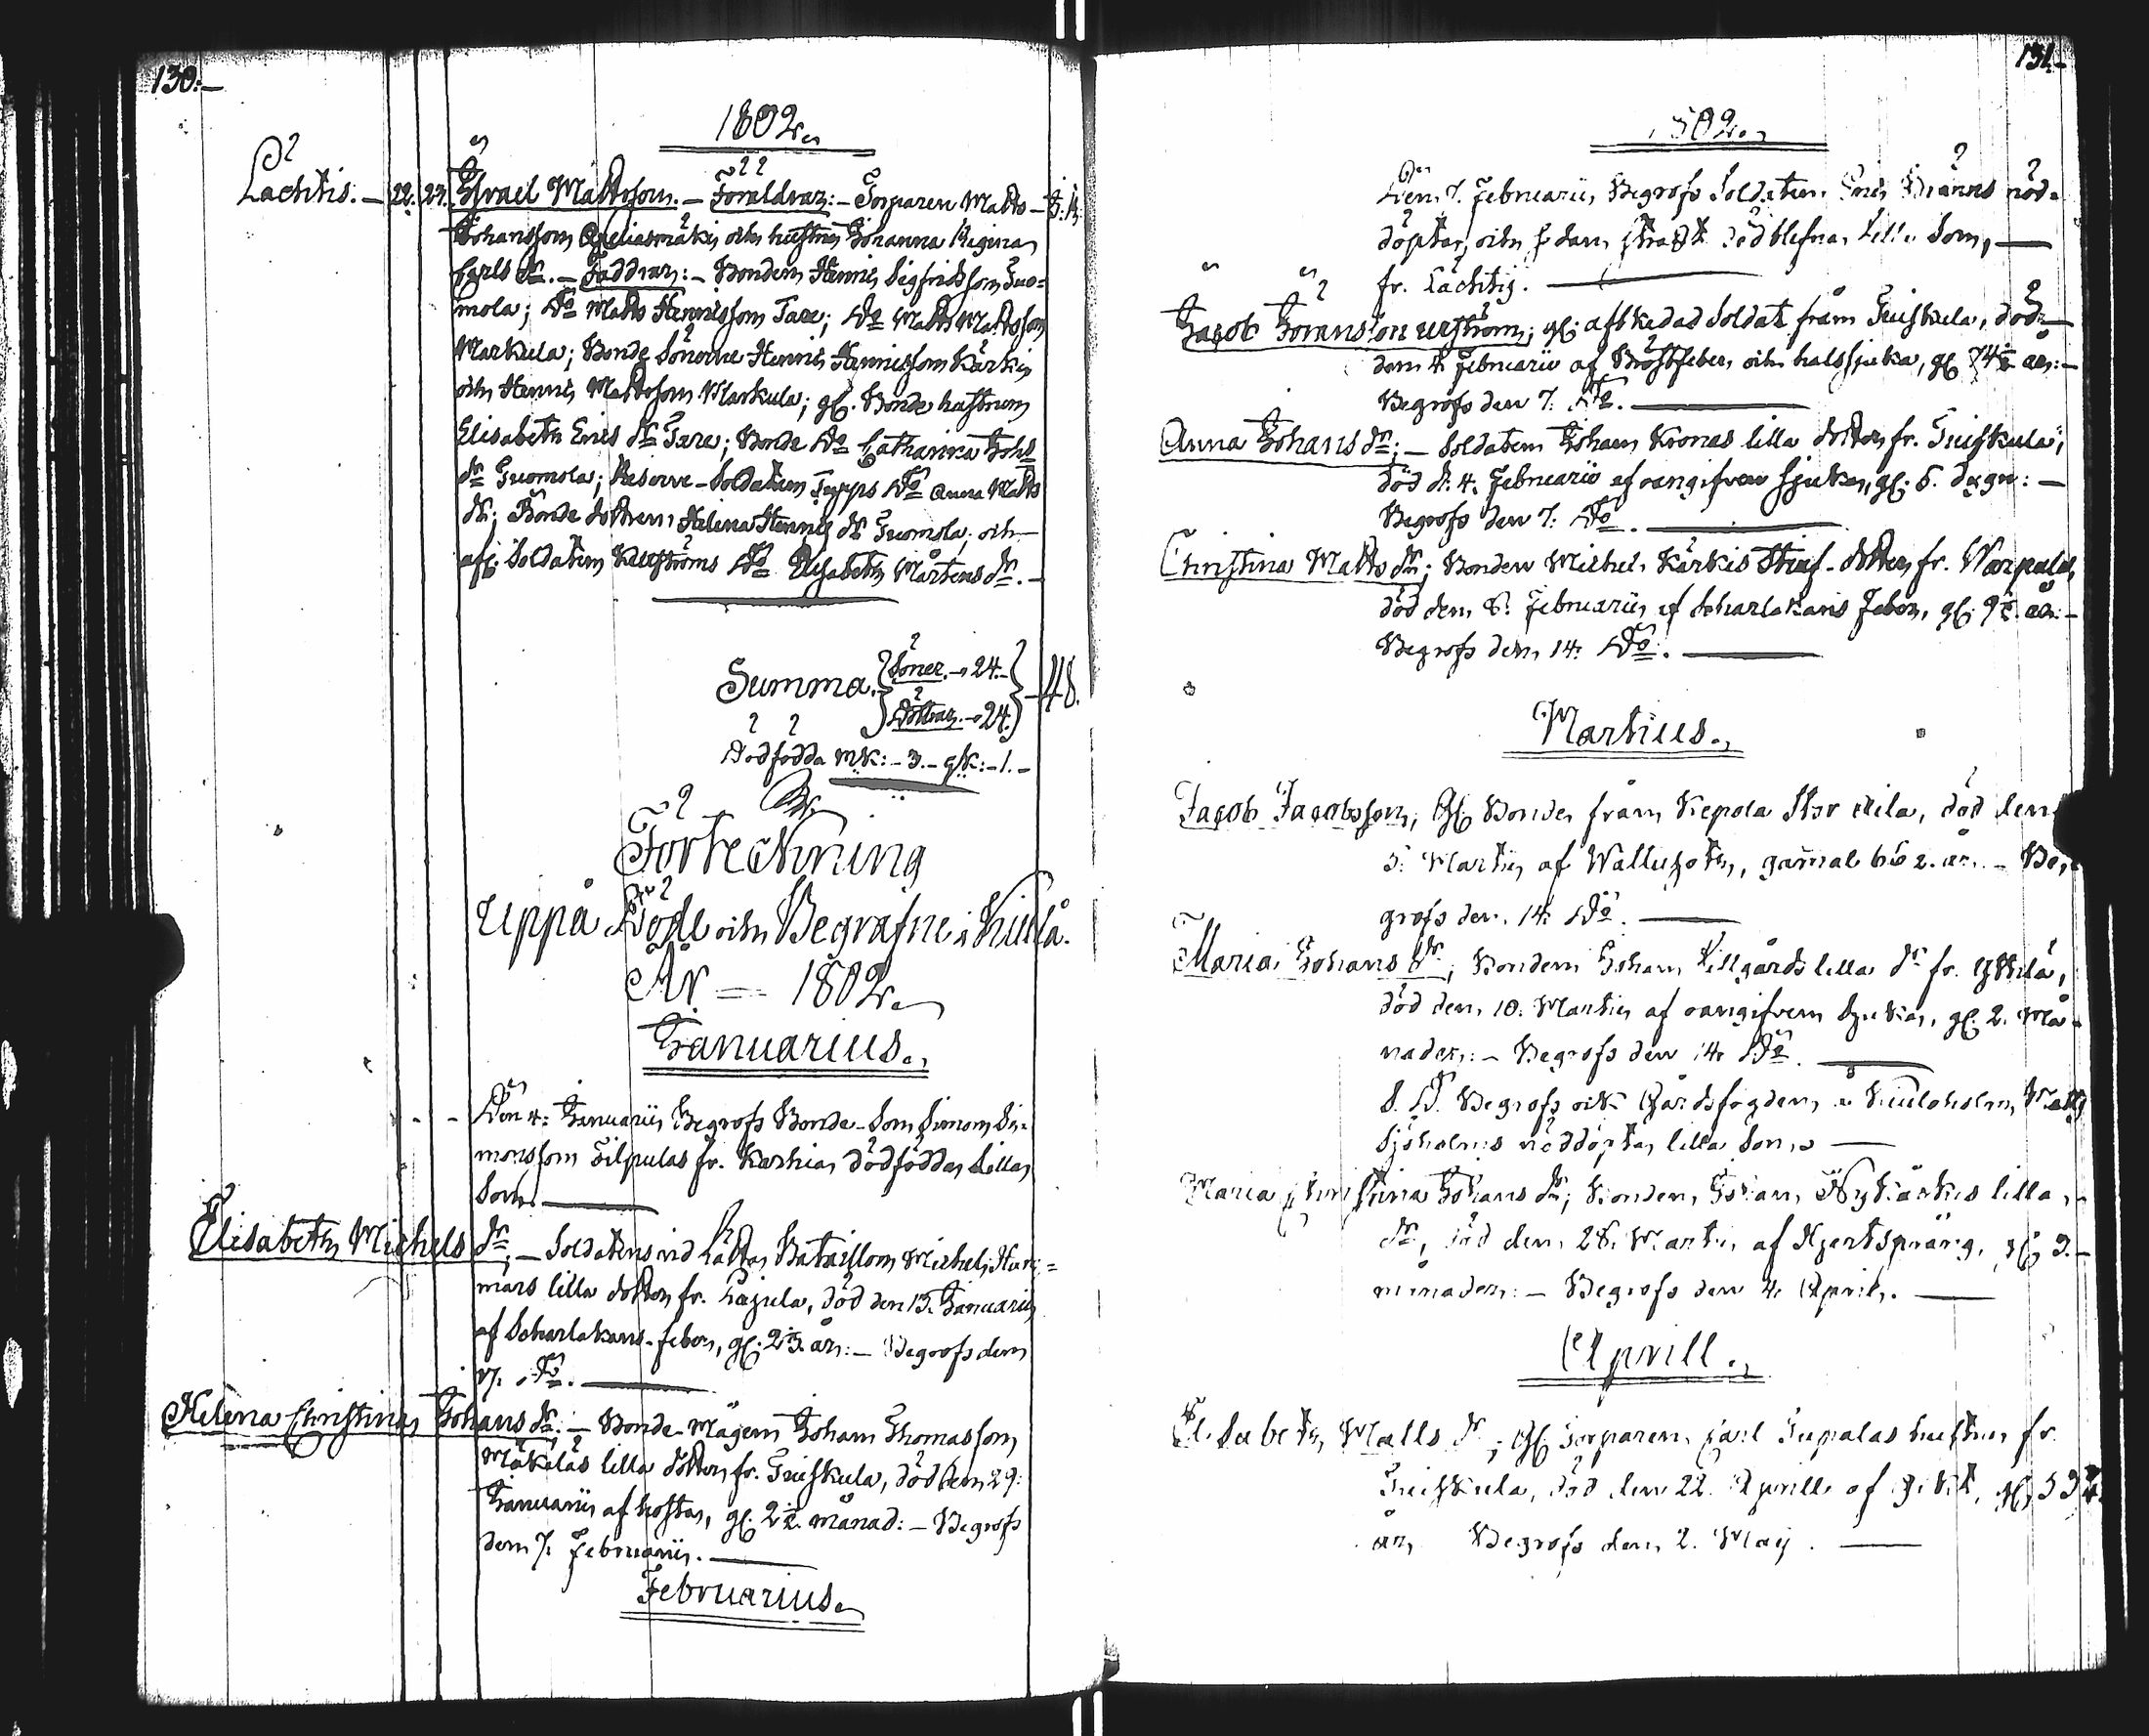 130.
1802.
Lachtis. — 22. 23. Israel Mattsson. — Föräldrar: — Torparen Matts
Johansson och hustru Johanna Regina
Carls dr. — Faddrar: — Bonden Henric Sigfridsson Tuo-
mola; Do Matts Henricsson Tare; Do Matts Mattsson
Markula; Bonde Sönerne Henric Henricsson Kärki
och Henric Mattsson Markula; gl. Bonde hustrun
Elisabeth Erics dr Tare; Bonde Do Catharina Johs
dr Tuomola; Reserve-Soldatens Do Anna Matts
dr; Bonde dottren Helena Henrics dr Tuomola; och
afs. Soldatens Do Elisabeth Mårtens dr. —
Summa. Söner. — 24. —
Döttrar. — 24. — 48.
Dödfödda mk: — 3. — qk: — 1. —
Förteckning
uppå Döde och Begrafne i Kiula
År — 1802.
Januarius.
Den 4: Januarii Begrofs Bonde-Son Simon Si-
monsson fr. Karhia dödfödda lilla
Son. —
Elisabeth Michels dr; — Soldatens vid Lätta Bataillon Michel
lilla dotter fr. död den 13. Januarii
af Scharlakans-feber, gl: 2 år: — Begrofs den
17. Do. —
Helena Christina Johans dr: — Bonde-Mågen Johan Thomasson
Mäkeläs lilla dotter, fr. Tuiskula, död den 29.
Januarii af hosta, gl: 2 ½ månad: — Begrofs
den 7. Februarii. —
Februarius.
131.
1802.
Den 7. Februarii Begrofs Soldaten Eric nöd-
döpta, och sedan strax död blefna lilla Son, —
fr. Lachtis. —
Jacob Göransson gl: afskedad Soldat från Tuiskula, död
den 4 Februarii af Bröstfeber och halssjuka, gl. 74 ½ år: —
Begrofs den 7: Do. —
Anna Johans dr; — Soldaten Johan Kronas lilla dotter fr. Tuiskula;
död d. 4. Februarii af oangifven sjukdom, gl: 6. dygn: —
Begrofs den 7: Do. —
Christina Matts dr; Bonden Michel Kärkis Stiuf-dotter, fr. Warpula,
död den 8. Februarii af Scharlakans Feber, gl: 9 ½ år: —
Begrofs den 14. Do. —
Martius.
Jacob Jacobsson, gl Bonde från Kepola död den
5. Martii af gammal 66 ½ år. — Be-
grofs den 14. Do. —
Maria Johans dr, Bonden Johan Lillgårds lilla dr fr. Yttilä,
död den 10. Martii af oangifven sjukdom, gl: 2. Må-
nader: — Begrofs den 14 Do. —
S. D. Begrofs ock Gårdsfogden å Kiuloholm, Matts
Sjöholms nöddöpta lilla Son. —
Maria Christina Johans dr; Bonden Johan Nykärkis lilla
dr, död den 28. Martii af Hjertsprång, gl: 3. —
månader: — Begrofs den 4. April. —
Aprill.
Elisabeth Matts dr; gl Torparen Carl Tupalas hustru fr.
Tuiskula, död den 22. Aprill af
år, Begrofs den 2. Maij. —